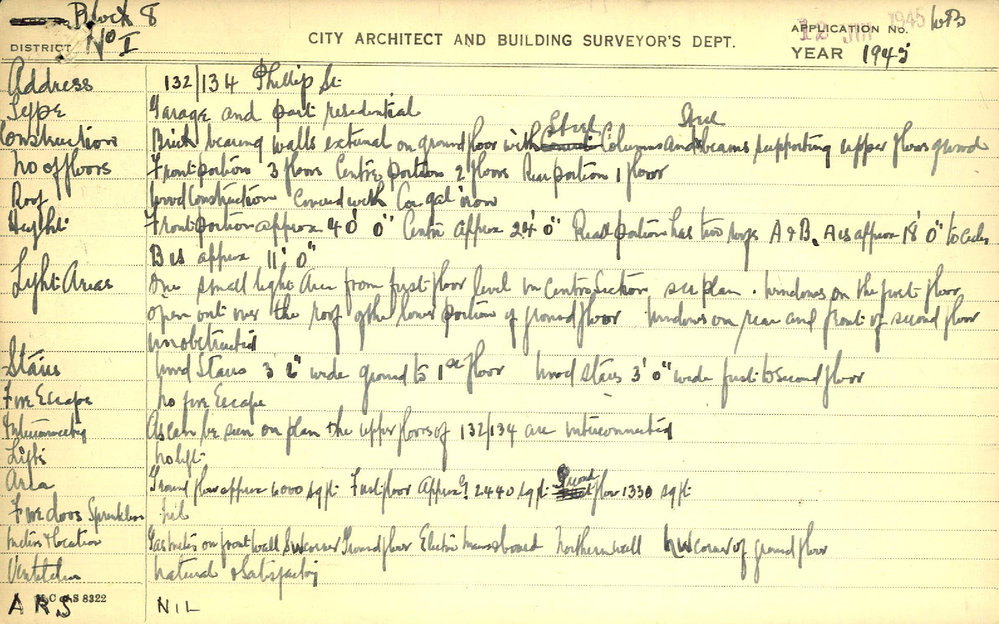 Block 8
DISTRICT No I
CITY ARCHITECT AND BUILDING SURVEYOR'S DEPT.
12 JUN 1945 WB
APPLICATION No.
YEAR 1945
Address 132/134 Phillip St.
Type Garage and part residential
Construction Brick bearing walls external on ground floor with Steel Columns and Steel beams supporting upper floors ground
No of floors Front portion 3 floors Centre portion 2 floors Rear portion 1 floor
Roof Wood Construction Covered with Cor gal iron
Height Front portion approx 40' 0" Centre approx 24' 0" Rear portion has two roofs A & B, A is approx 18' 0" to
B is approx 11' 0"
Light Areas One small light Area from first floor level in Centre Section see plan. Windows on the first floor
open out over the roof of the lower portion of ground floor Windows on rear and front of second floor
unobstructed
Stairs Wood Stairs 3' 6" wide ground to 1st floor Wood stairs 3' 0" wide first to second floor
Fire Escape No fire Escape
Interconnecting As can be seen on plan the upper floors of 132/134 are interconnected
Lifts No lift
Area Ground floor approx 6000 sq ft First floor Approx 2440 sq ft Second floor 1330 sq ft
Fire doors Sprinklers Nil
Meters & location Gas meters on front wall SW corner Ground floor Electric mains board Northern wall NW corner of ground floor
Ventilation Natural & Satisfactory
S 8322
A R S NIL